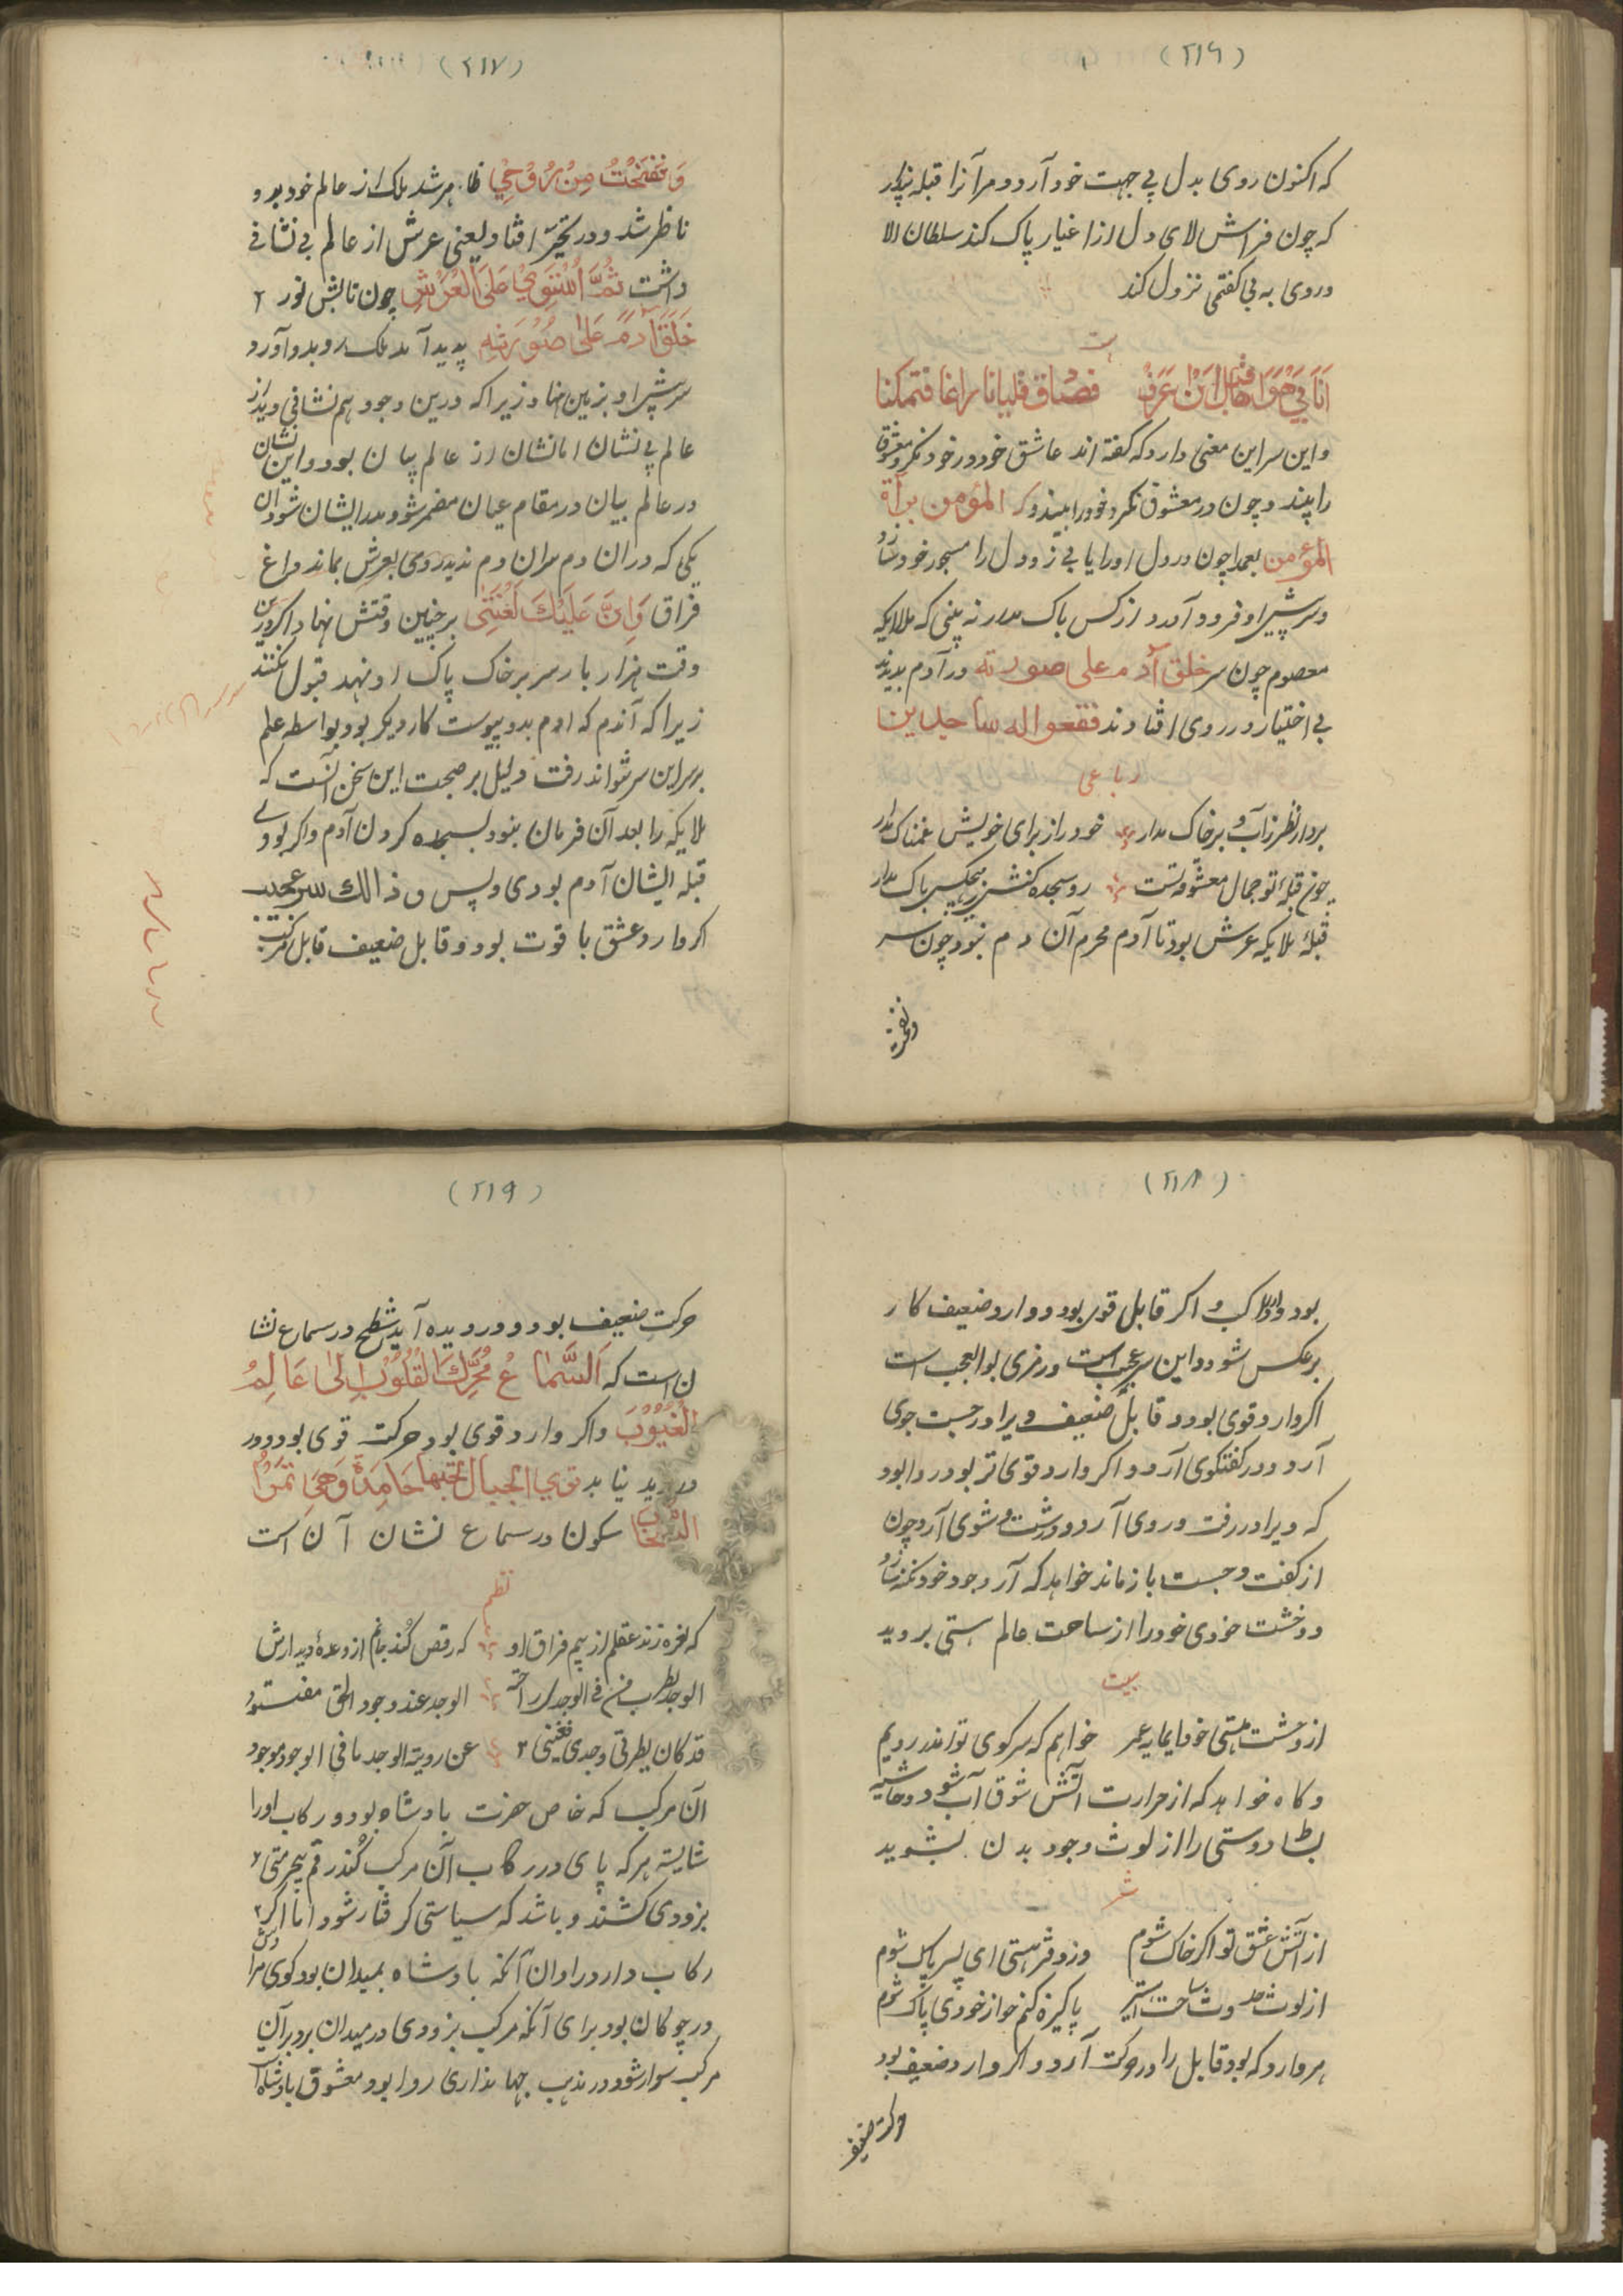 (٢١٦)
که اکنون روی بدل پی جهت خود آرد و مر آنرا قبله پندار
که چون فراش لای دل از اغیار پاک کند سلطان الا
وروی به بی کفتمی نزول کند
واین سر این معنی دارد که کفته اند عاشق خود در خود نکرد معشوق
را بیند و چون در معشوق نکرد خود را بیند که المؤمن مرآة
المؤمن بعد اچون در دل او را یابی زود دل را مسجود خود سازد
و سر پیش او فرود آمدد از کس باک مدار نه بینی که ملایکه
معصوم چون سر خلق آدم علی صورته در آدم بدیدند
بی اختیار در روی افتادند فقعوا له ساجدین
رباعی
بردار نظر زآب و بر خاک مدار خود را ز برای خویش غمناک مدار
چون قبلۀ تو جمال معشوقه تست رو سجده کنش ز هیچکس باک مدار
قبلۀ ملایکه عرش بود تا آدم محرم آن دم نبود چون سر
ونفخت
(٢١٧)
وَنَفَخْتُ مِنْ رُوحِي ظاهر شد ملک از عالم خود بدو
ناظر شد و در تحیّر افتاد یعنی عرش از عالم بی نشانی
داشت ثُمَّ اسْتَوٰى عَلَى الْعَرْشِ چون تابش نور ٢
خَلَقَ آدَمَ عَلىٰ صُوْرَتِهِ پدید آمد ملک رو بدو آورد
سر پیش او بزمین نهاد زیرا که درین وجود هم نشانی دید از
عالم بی نشان اما نشان از عالم بیان بود و این نشان
در عالم بیان در مقام عیان مضمر شود مدد ایشان شود آن
یکی که در ان دم مران دم ندید روی بعرش بماند و داغ
فراق وَاِنَّ عَلَيْكَ لَعْنَتِى بر جبین وقتش نهاد اکر درین
وقت هزار بار سر بر خاک پاک او نهد قبول نکنند
زیرا که آندم که آدم بدو پیوست کار دیکر بود بواسطه علم
بر سر این سر نتواند رفت دلیل بر صحت این سخن آنست که
ملایکه را بعد آن فرمان نبود بسجده کردن آدم واکر بودی
قبله ایشان آدم بودی و بس و ذالك سر عجیب
اکر وارد عشق با قوت بود و قابل ضعیف قابل مرکب
(٢١٨)
بود وارد راکب و اکر قابل قوی بود و وارد ضعیف کار
بر عکس شود و این سر عجیب است و رمزی بوالعجب است
اکر وارد قوی بود و قابل ضعیف ویرا در جست جوی
آرد و در کفتکوی آرد و اکر وارد قوی تر بود روا بود
که ویرا در رفت و روی آرد و در شست و شوی آرد چون
از کفت و جست باز ماند خواهد که آر وجود خود نکنه سازد
دوخشت خودی خود را از ساحت عالم هستی بروید
بیت
از وحشت هستی خود ایمایه عمر خواهم که سر کوی تو اندر رویم
و کاه خواهد که از حرارت آتش شوق آب شود و حاشیه
بساط دوستی را از لوث وجود بدن بشوید
شعر
از آتش عشق تو اکر خاک شوم وز دفتر هستی ای پسر پاک شوم
پاکیزه کنم خو از خودی پاک شوم
هر وارد که بود قابل را در حرکت آرد و اکر وارد ضعیف بود
حرکت ضعیف
(٢١٩)
حرکت ضعیف بود و در دیده آید شطح در سماع نشا
ن است که اَلسَّمَاعُ مُحَرِّكُ الْقُلُوْبِ اِلىٰ عَالَمِ
الْغُيُوْبِ واکر وارد قوی بود حرکت قوی بود و در
دیدید نیابد تری الجبال تحسبها جَامِدَةً وَهِيَ تَمُرُّ
السحاب سکون در سماع نشان آن است
نظم
که نعره زند عقلم از بیم فراق او که رقص کند جانم از وعدۀ دیدارش
الوجد یطرب من فی الوجد راحته الوجد عند وجود الحق مفقود
قد کان یطربنی وجدی فغیبنی ٢ عن رویة الوجد مافی الوجود موجود
آن مرکب که خاص حضرت بادشاه بود و رکاب او را
شایسته هر که پای در رکاب آن مرکب کند رقم بیحرمتی ٢
بزودی کشند و باشد که سیاستی کرفتار شود اما اکر ٢
رکاب دار در اوان آنکه بادشاه بمیدان بود کوی مرادش
در چوکان بود برای آنکه مرکب بزودی در میدان برد بر آن
مرکب سوار شود در مذهب جهانداری روا بود معشوق بادشاه